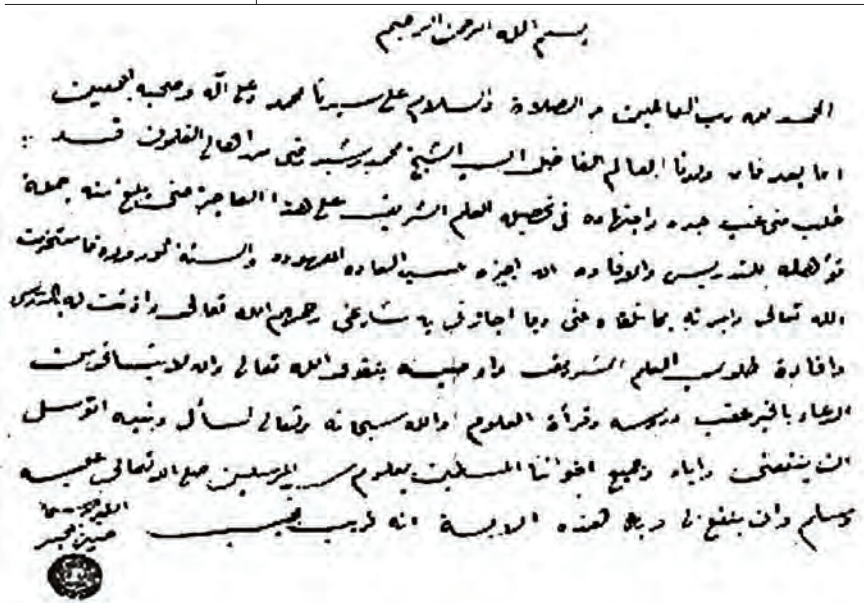 بسم الله الرحمن الرحيم
الحمد لله رب العالمين والصلاة والسلام على سيدنا محمد وعلى آله وصحبه اجمعين
اما بعد فان ولدنا العالم الفاضل السيد الشيخ محمد رشيد رضى من اهالي القلمون قد
طلب مني عقب جده واجتهاده في تحصيل العلم الشريف على هذا العاجز حتى بلغ منه جملة
تؤهله للتدريس والافاده ان اجيزه حسب العاده المعهوده والسنة فاستخرت
الله تعالى واجزته بما تلقاه عني وبما اجازني به مشايخي رحمهم الله تعالى واذنت له بالتدريس
وافادة طلاب العلم الشريف واوصيته بتقوى الله تعالى وان لا ينساني من
الدعاء بالخير عقب دروسه وقرأة العلوم والله سبحانه وتعالى اسأل وبنبيه اتوسل
ان ينفعني واياه وجميع اخواننا المسلمين بعلوم سيد المرسلين صلى الله تعالى عليه
وسلم وان ينفع بي وبه هذه الامة انه قريب مجيب
حسين الجسر